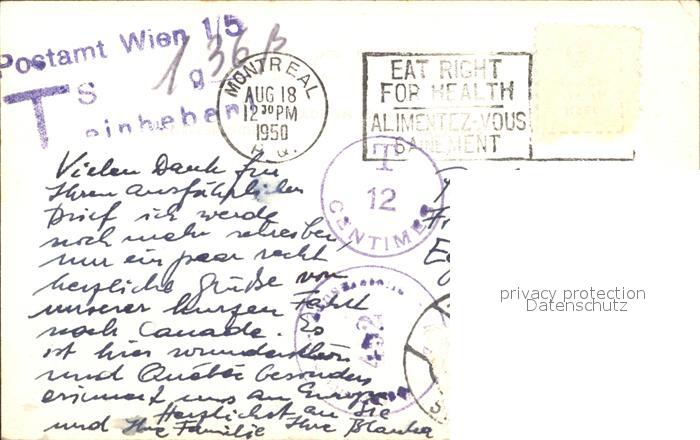 Postamt Wien 1/5
1 36
T S g
einheben!
MONTREAL
AUG 18
12 30 PM
1950
P.Q.
EAT RIGHT
FOR HEALTH
ALIMENTEZ-VOUS
SAINEMENT
T
12
CENTIMES
Vielen Dank für
Ihren ausführlichen
Brief ich werde
noch mehr schreiben
nur ein paar recht
herzliche Grüße von
unserer kurzen Fahrt
nach Canada. Es
ist hier wunderschön
und Québec besonders
erinnert uns an Europa
Herzlichst an Sie
und Ihre Familie Ihre Blanka
492
privacy protection
Datenschutz